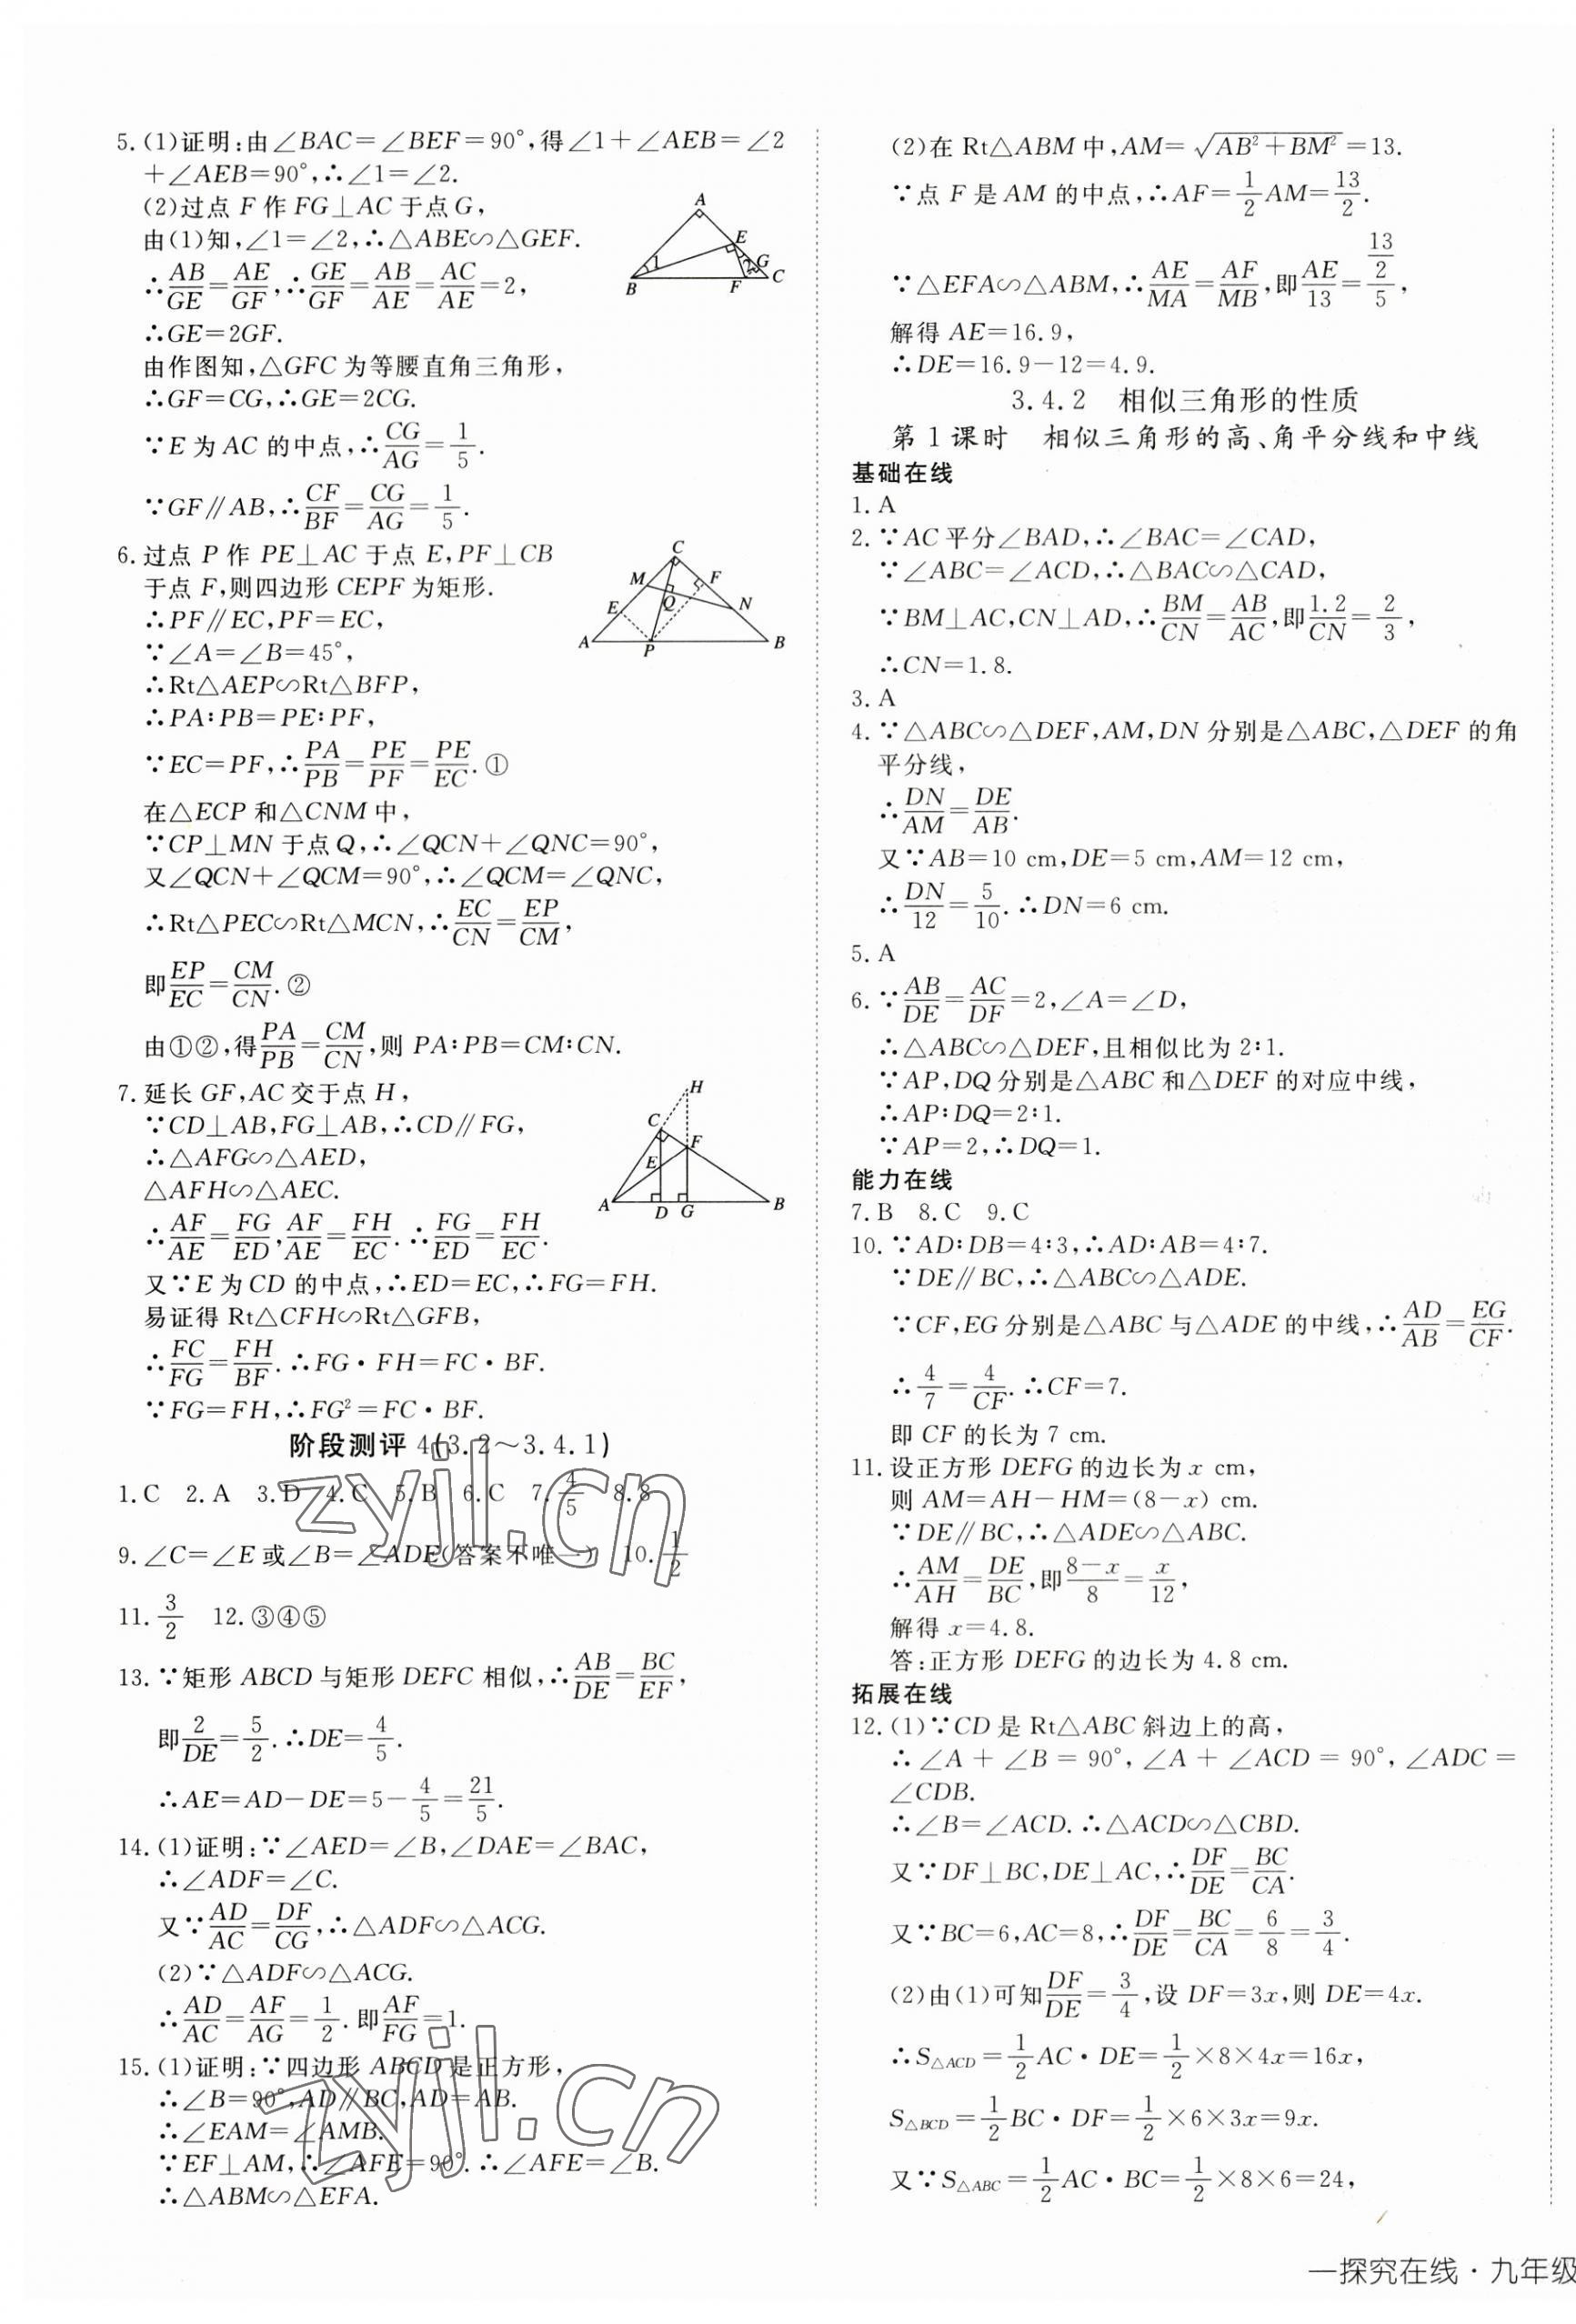 5. (1)证明:由∠BAC=∠BEF=90°,得∠1+∠AEB=∠2
+∠AEB=90°,∴∠1=∠2.
(2)过点 F 作 FG⊥AC 于点 G,
由(1)知,∠1=∠2,∴△ABE∽△GEF.
∴AB/GE=AE/GF,∴GE/GF=AB/AE=AC/AE=2,
∴GE=2GF.
由作图知,△GFC 为等腰直角三角形,
∴GF=CG,∴GE=2CG.
∵E 为 AC 的中点,∴CG/AG=1/5.
∵GF∥AB,∴CF/BF=CG/AG=1/5.
A
E
1
2
G
B
F
C
6. 过点 P 作 PE⊥AC 于点 E,PF⊥CB
于点 F,则四边形 CEPF 为矩形.
∴PF∥EC,PF=EC,
∵∠A=∠B=45°,
∴Rt△AEP∽Rt△BFP,
∴PA∶PB=PE∶PF,
∵EC=PF,∴PA/PB=PE/PF=PE/EC.①
在△ECP 和△CNM 中,
∵CP⊥MN 于点 Q,∴∠QCN+∠QNC=90°,
又∠QCN+∠QCM=90°,∴∠QCM=∠QNC,
∴Rt△PEC∽Rt△MCN,∴EC/CN=EP/CM,
即EP/EC=CM/CN.②
由①②,得PA/PB=CM/CN,则 PA∶PB=CM∶CN.
C
M
F
E
Q
N
A
P
B
7. 延长 GF,AC 交于点 H,
∵CD⊥AB,FG⊥AB,∴CD∥FG,
∴△AFG∽△AED,
△AFH∽△AEC.
∴AF/AE=FG/ED,AF/AE=FH/EC.∴FG/ED=FH/EC.
又∵E 为 CD 的中点,∴ED=EC,∴FG=FH.
易证得 Rt△CFH∽Rt△GFB,
∴FC/FG=FH/BF.∴FG·FH=FC·BF.
∵FG=FH,∴FG²=FC·BF.
H
C
F
E
A
D
G
B
阶段测评 4(3.2～3.4.1)
1. C 2. A 3. D 4. C 5. B 6. C 7. 4/5 8. 8
9. ∠C=∠E 或∠B=∠ADE(答案不唯一) 10. 1/2
11. 3/2 12. ③④⑤
13. ∵矩形 ABCD 与矩形 DEFC 相似,∴AB/DE=BC/EF,
即2/DE=5/2.∴DE=4/5.
∴AE=AD−DE=5−4/5=21/5.
14. (1)证明:∵∠AED=∠B,∠DAE=∠BAC,
∴∠ADF=∠C.
又∵AD/AC=DF/CG,∴△ADF∽△ACG.
(2)∵△ADF∽△ACG.
∴AD/AC=AF/AG=1/2.即AF/FG=1.
15. (1)证明:∵四边形 ABCD 是正方形,
∴∠B=90°,AD∥BC,AD=AB.
∴∠EAM=∠AMB.
∵EF⊥AM,∴∠AFE=90°.∴∠AFE=∠B.
∴△ABM∽△EFA.
zyjl.cn
zyjl.cn
(2)在 Rt△ABM 中,AM=√(AB²+BM²)=13.
∵点 F 是 AM 的中点,∴AF=1/2AM=13/2.
∵△EFA∽△ABM,∴AE/MA=AF/MB,即AE/13=(13/2)/5,
解得 AE=16.9,
∴DE=16.9−12=4.9.
3.4.2 相似三角形的性质
第 1 课时 相似三角形的高、角平分线和中线
基础在线
1. A
2. ∵AC 平分∠BAD,∴∠BAC=∠CAD,
∵∠ABC=∠ACD,∴△BAC∽△CAD,
∵BM⊥AC,CN⊥AD,∴BM/CN=AB/AC,即1.2/CN=2/3,
∴CN=1.8.
3. A
4. ∵△ABC∽△DEF,AM,DN 分别是△ABC,△DEF 的角
平分线,
∴DN/AM=DE/AB.
又∵AB=10 cm,DE=5 cm,AM=12 cm,
∴DN/12=5/10.∴DN=6 cm.
5. A
6. ∵AB/DE=AC/DF=2,∠A=∠D,
∴△ABC∽△DEF,且相似比为 2∶1.
∵AP,DQ 分别是△ABC 和△DEF 的对应中线,
∴AP∶DQ=2∶1.
∵AP=2,∴DQ=1.
能力在线
7. B 8. C 9. C
10. ∵AD∶DB=4∶3,∴AD∶AB=4∶7.
∵DE∥BC,∴△ABC∽△ADE.
∵CF,EG 分别是△ABC 与△ADE 的中线,∴AD/AB=EG/CF.
∴4/7=4/CF.∴CF=7.
即 CF 的长为 7 cm.
11. 设正方形 DEFG 的边长为 x cm,
则 AM=AH−HM=(8−x) cm.
∵DE∥BC,∴△ADE∽△ABC.
∴AM/AH=DE/BC,即(8−x)/8=x/12,
解得 x=4.8.
答:正方形 DEFG 的边长为 4.8 cm.
拓展在线
12. (1)∵CD 是 Rt△ABC 斜边上的高,
∴∠A+∠B=90°,∠A+∠ACD=90°,∠ADC=
∠CDB.
∴∠B=∠ACD.∴△ACD∽△CBD.
又∵DF⊥BC,DE⊥AC,∴DF/DE=BC/CA.
又∵BC=6,AC=8,∴DF/DE=BC/CA=6/8=3/4.
(2)由(1)可知DF/DE=3/4,设 DF=3x,则 DE=4x.
∴S△ACD=1/2AC·DE=1/2×8×4x=16x,
S△BCD=1/2BC·DF=1/2×6×3x=9x.
又∵S△ABC=1/2AC·BC=1/2×8×6=24,
一探究在线·九年级